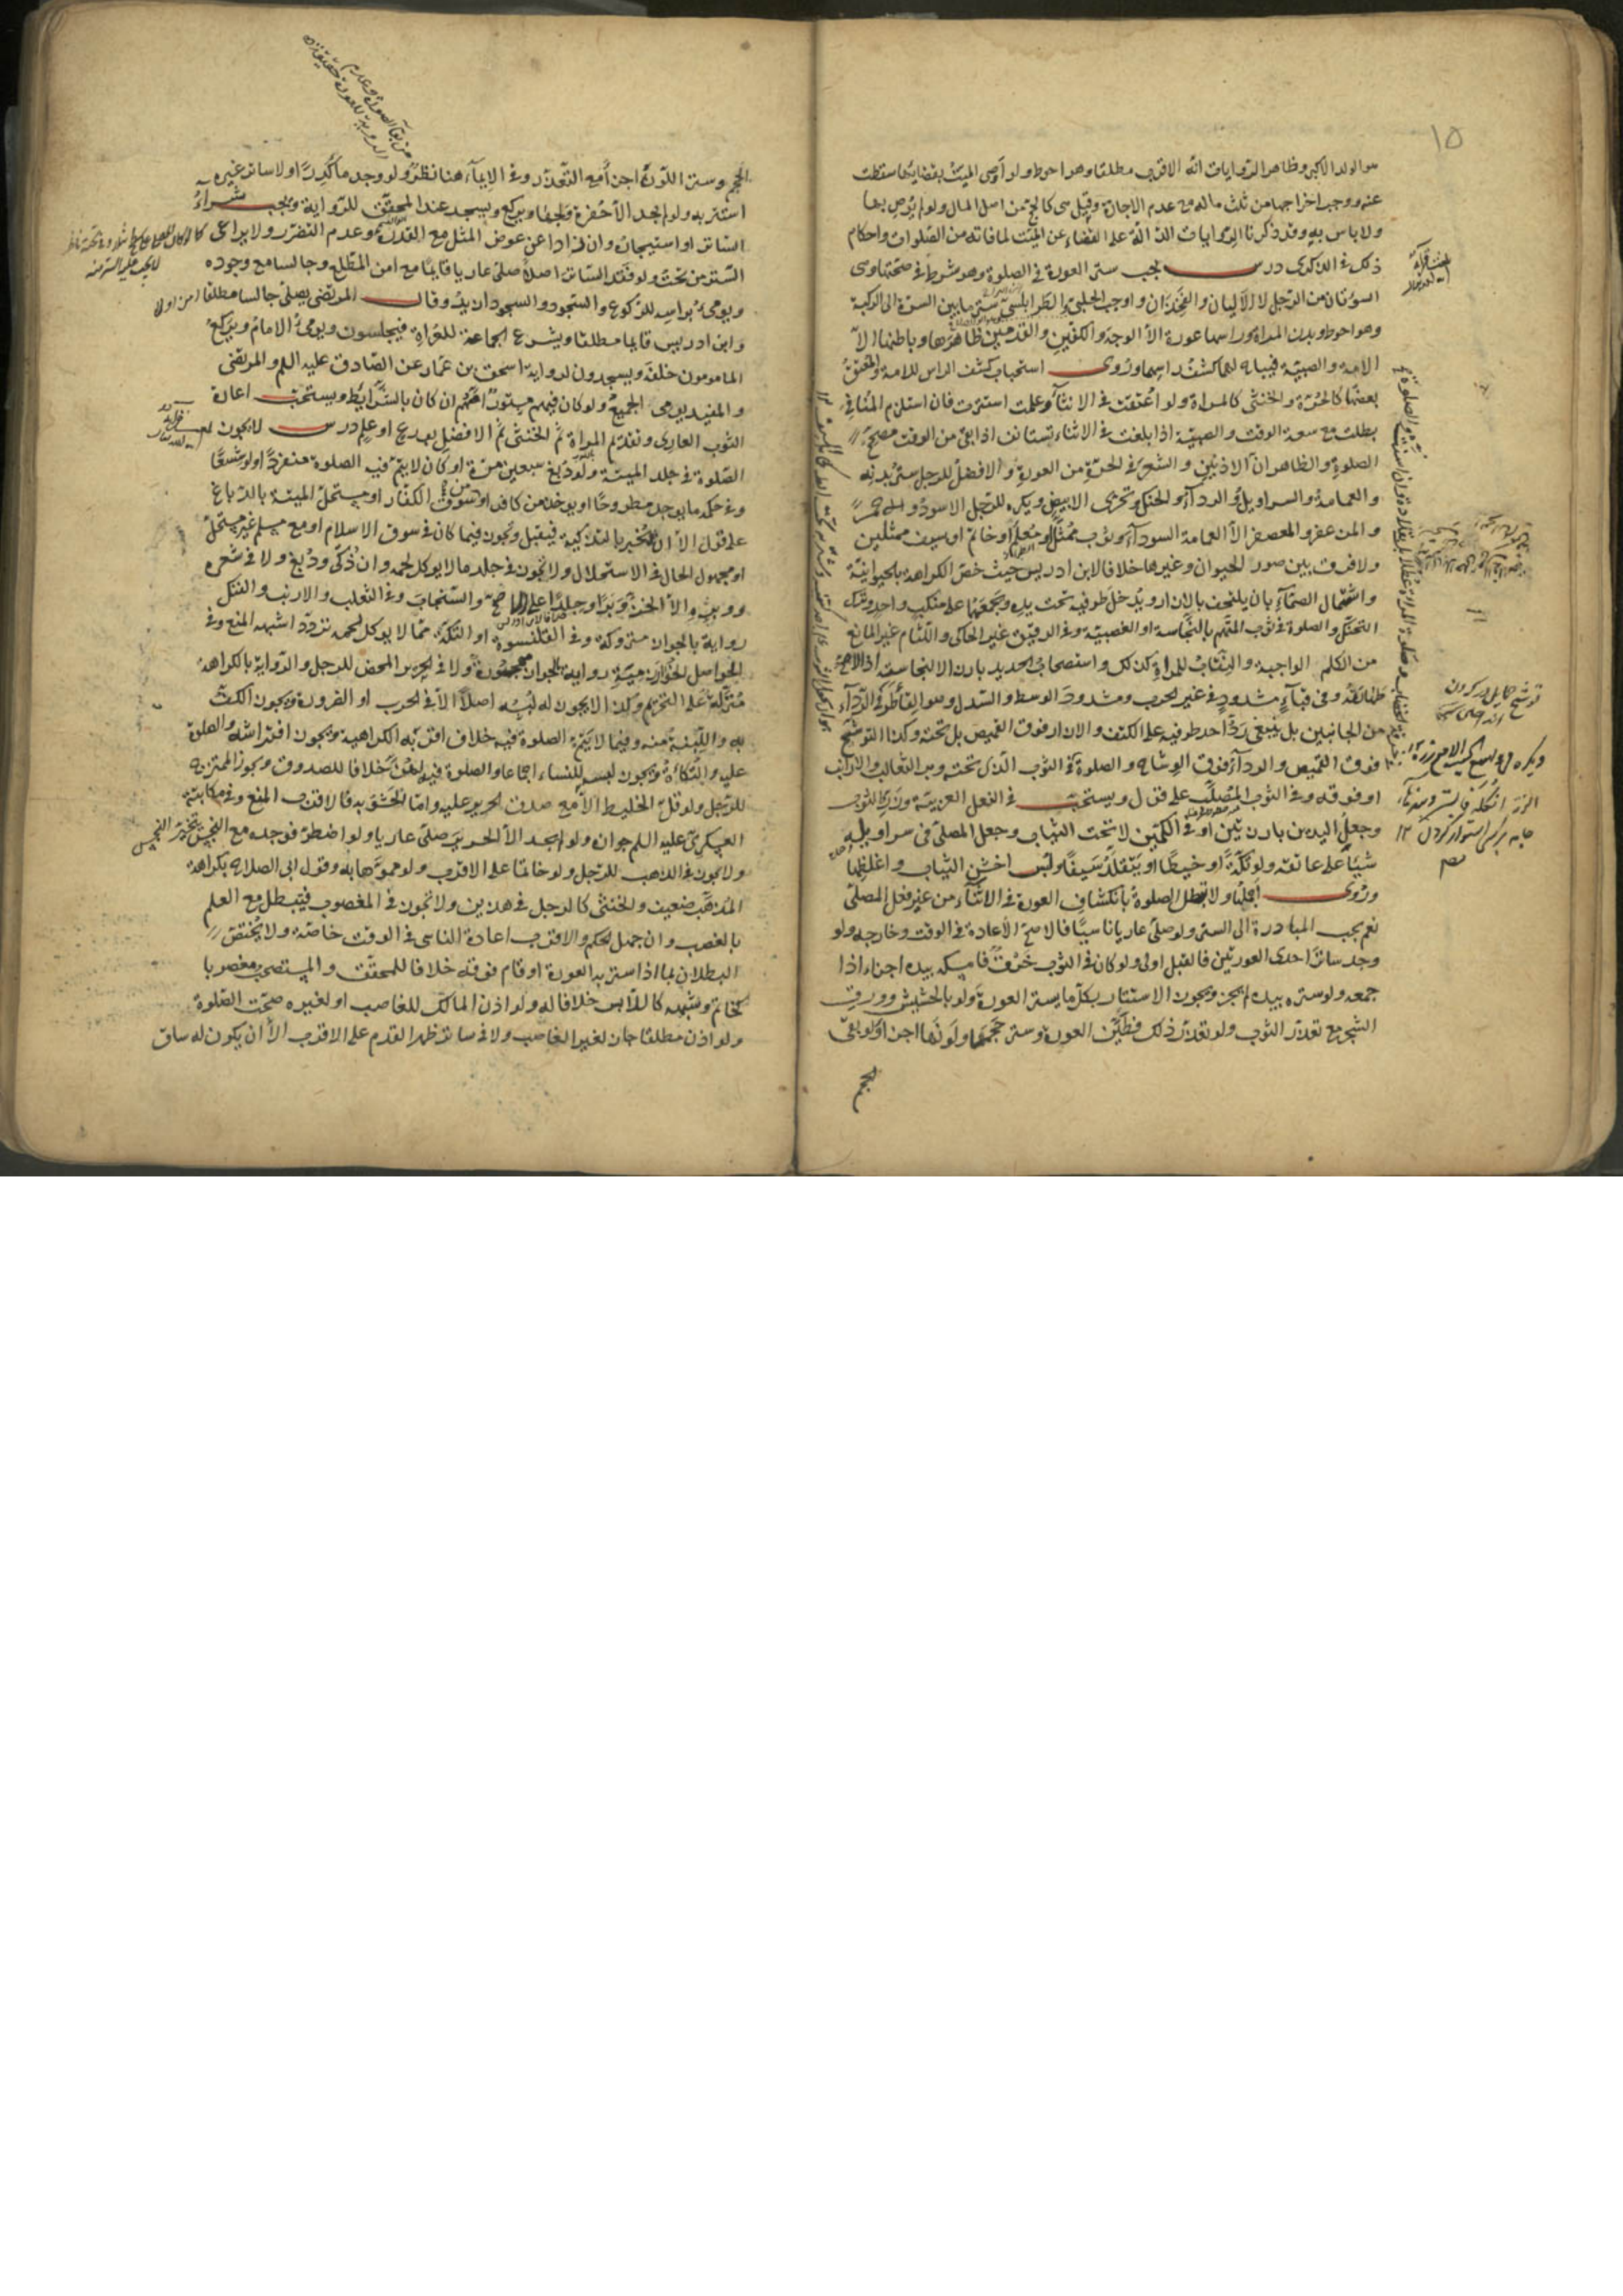 ١٥
هو الولد الاكبر وظاهر الروايات انه الاقرب مطلقا وهو احوط ولو اوصى الميت بقضائها سقطت
عنه ووجب اخراجها من ثلث ماله مع عدم الاجازة وقيل هى كالحج من اصل المال ولو لم يوص بها
ولا باس به وقد ذكرنا الروايات الدالة على القضاء عن الميت لما فاته من الصلوات واحكام
ذلك فى الذكرى درس يجب ستر العورة فى الصلوة وهو شرط فى صحتها وهى
السوءتان من الرجل لا الاليان والفخذان واوجب الحلبى والطرابلسى ستر ما بين السرة الى الركبة
وهو احوط وبدن المراة وراسها عورة الا الوجه والكفين والقدمين ظاهرها وباطنها الا
الامة والصبية فيباح لهما كشف راسهما وروى استحباب كشف الراس للامة والمعتق
بعضها كالحرة والخنثى كالمراة ولو اعتقت فى الاثناء وعلمت استترت فان استلزم المنافى
بطلت مع سعة الوقت والصبية اذا بلغت فى الاثناء تستانف اذا بقى من الوقت مصحح
الصلوة والظاهر ان الاذنين والشعر فى الحرة من العورة والافضل للرجل ستر بدنه
والعمامة والسراويل والرداء والحنك وتحرى الابيض ويكره للرجل الاسود والاحمر
والمزعفر والمعصفر الا العمامة السوداء وثوب ممثل او معلم او خاتم او سيف ممثلين
ولا فرق بين صور الحيوان وغيرها خلافا لابن ادريس حيث خص الكراهة بالحيوانية
واشتمال الصماء بان يلتحف بالازار ويدخل طرفيه تحت يده ويجمعهما على منكب واحد وترك
التحنك والصلوة فى ثوب المتهم بالنجاسة او الغصبية وفى الرقيق غير الحاكى واللثام غير المانع
من الكلم الواجبة والنقاب للمراة كذلك واستصحاب الحديد بارزا لا لنجاسته اذ الاصح
طهارته وفى قباء مشدود فى غير الحرب ومشدود الوسط والسدل وهو القاء طرفى الرداء
من الجانبين بل ينبغى رد احد طرفيه على الكتف والازار فوق القميص بل تحته وكذا التوشح
فوق القميص والرداء فوق الوشاح والصلوة فى الثوب الذى تحته وبر الثعالب والارانب
او فوقه وفى الثوب المصلب على قول ويستحب فى النعل العربية وزر الثوب
وجعل اليدين بارزتين او فى الكمين لا تحت الثياب وجعل المصلى فى سراويله
شيئا على عاتقه ولو تكة او خيطا او يتقلد سيفا ولبس اخشن الثياب واغلظها
وروى اجملها ولا تبطل الصلوة بانكشاف العورة فى الاثناء من غير فعل المصلى
نعم يجب المبادرة الى الستر ولو صلى عاريا ناسيا فالاصح الاعادة فى الوقت وخارجه ولو
وجد ساتر احدى العورتين فالقبل اولى ولو كان فى الثوب خرق فامسكه بيده اجزاء اذا
جمعه ولو ستره بيده لم يجز ويجوز الاستتار بكل ما يستر العورة ولو بالحشيش وورق
الشجر مع تعذر الثوب ولو تعذر ذلك فطين العورة وستر حجمها ولونها اجزا ولو بقى
الحجم
الحجم وستر اللون اجزأ مع التعذر وفى الايماء هنا نظر ولو وجد ماء كدرا ولا ساتر غيره
استتر به ولو لم يجد الا حفرة ولجها ويركع ويسجد عند المحقق للرواية ويجب شراء
الساتر او استيجاره وان زاد عن عوض المثل مع القدرة وعدم التضرر ولا يراعى
الستر من تحت ولو فقد الساتر اصلا صلى عاريا قايما مع امن المطلع وجالسا مع وجوده
ويومى براسه للركوع والسجود والسجود ازيد وقال المرتضى يصلى جالسا مطلقا
وابن ادريس قايما مطلقا ويشرع الجماعة للعراة فيجلسون ويومى الامام ويركع
المامومون خلفه ويسجدون لرواية اسحق بن عمار عن الصادق عليه السلم والمرتضى
والمفيد يومى الجميع ولو كان فيهم مستور امهم ان كان بالشرايط ويستحب اعارة
الثوب العارى وتقدم المراة ثم الخنثى ثم الافضل بورع او علم درس لا يجوز
الصلوة فى جلد الميتة ولو دبغ سبعين مرة او كان لا يتم فيه الصلوة منفردا ولو شسعا
وفى حكمه ما يوجد مطروحا او يوخذ من كافر او من سوق الكفار او مستحل الميتة بالدباغ
على قول الا ان يخبر بالتذكية فيقبل ويجوز فيما كان فى سوق الاسلام او مع مسلم غير مستحل
او مجهول الحال فى الاستحلال ولا يجوز فى جلد ما لا يوكل لحمه وان ذكى ودبغ ولا فى شعره
ووبره الا الخز وبرا وجلدا على الاصح والسنجاب وفى الثعلب والارنب والفنك
رواية بالجواز متروكة وفى القلنسوة او التكة مما لا يوكل لحمه تردد اشبهه المنع وفى
الحواصل الخوارزمية رواية بالجواز مهجورة ولا فى الحرير المحض للرجل والرواية بالكراهة
منزلة على التحريم وكذا لا يجوز له لبسه اصلا الا فى الحرب او الضرورة ويجوز الكف
به واللبنة منه وفيما لا يتم الصلوة فيه خلاف اقربه الكراهية ويجوز افتراشه والصلوة
عليه والتكأة ويجوز لبسه للنساء اجماعا والصلوة فيه لهن خلافا للصدوق ويجوز الممتزج
للرجل ولو قل الخليط الا مع صدق الحرير عليه واما الحشو به فالاقرب المنع وفى مكاتبة
العسكرى عليه السلم جوازه ولو لم يجد الا الحرير صلى عاريا ولو اضطر فوجده مع النجس
ولا يجوز فى الذهب للرجل ولو خاتما على الاقرب ولو مموها به وقول ابى الصلاح بكراهة
المذهب ضعيف والخنثى كالرجل فى هذين ولا يجوز فى المغصوب فيبطل مع العلم
بالغصب وان جهل الحكم والاقرب اعادة الناسى فى الوقت خاصة ولا يختص
البطلان بما اذا ستر به العورة او قام فوقه خلافا للمحقق والمستصحب مغصوبا
كخاتم وشبهه كاللابس خلافا له ولو اذن المالك للغاصب او لغيره صحت الصلوة
ولو اذن مطلقا جاز لغير الغاصب ولا فى ساتر ظهر القدم على الاقرب الا ان يكون له ساق